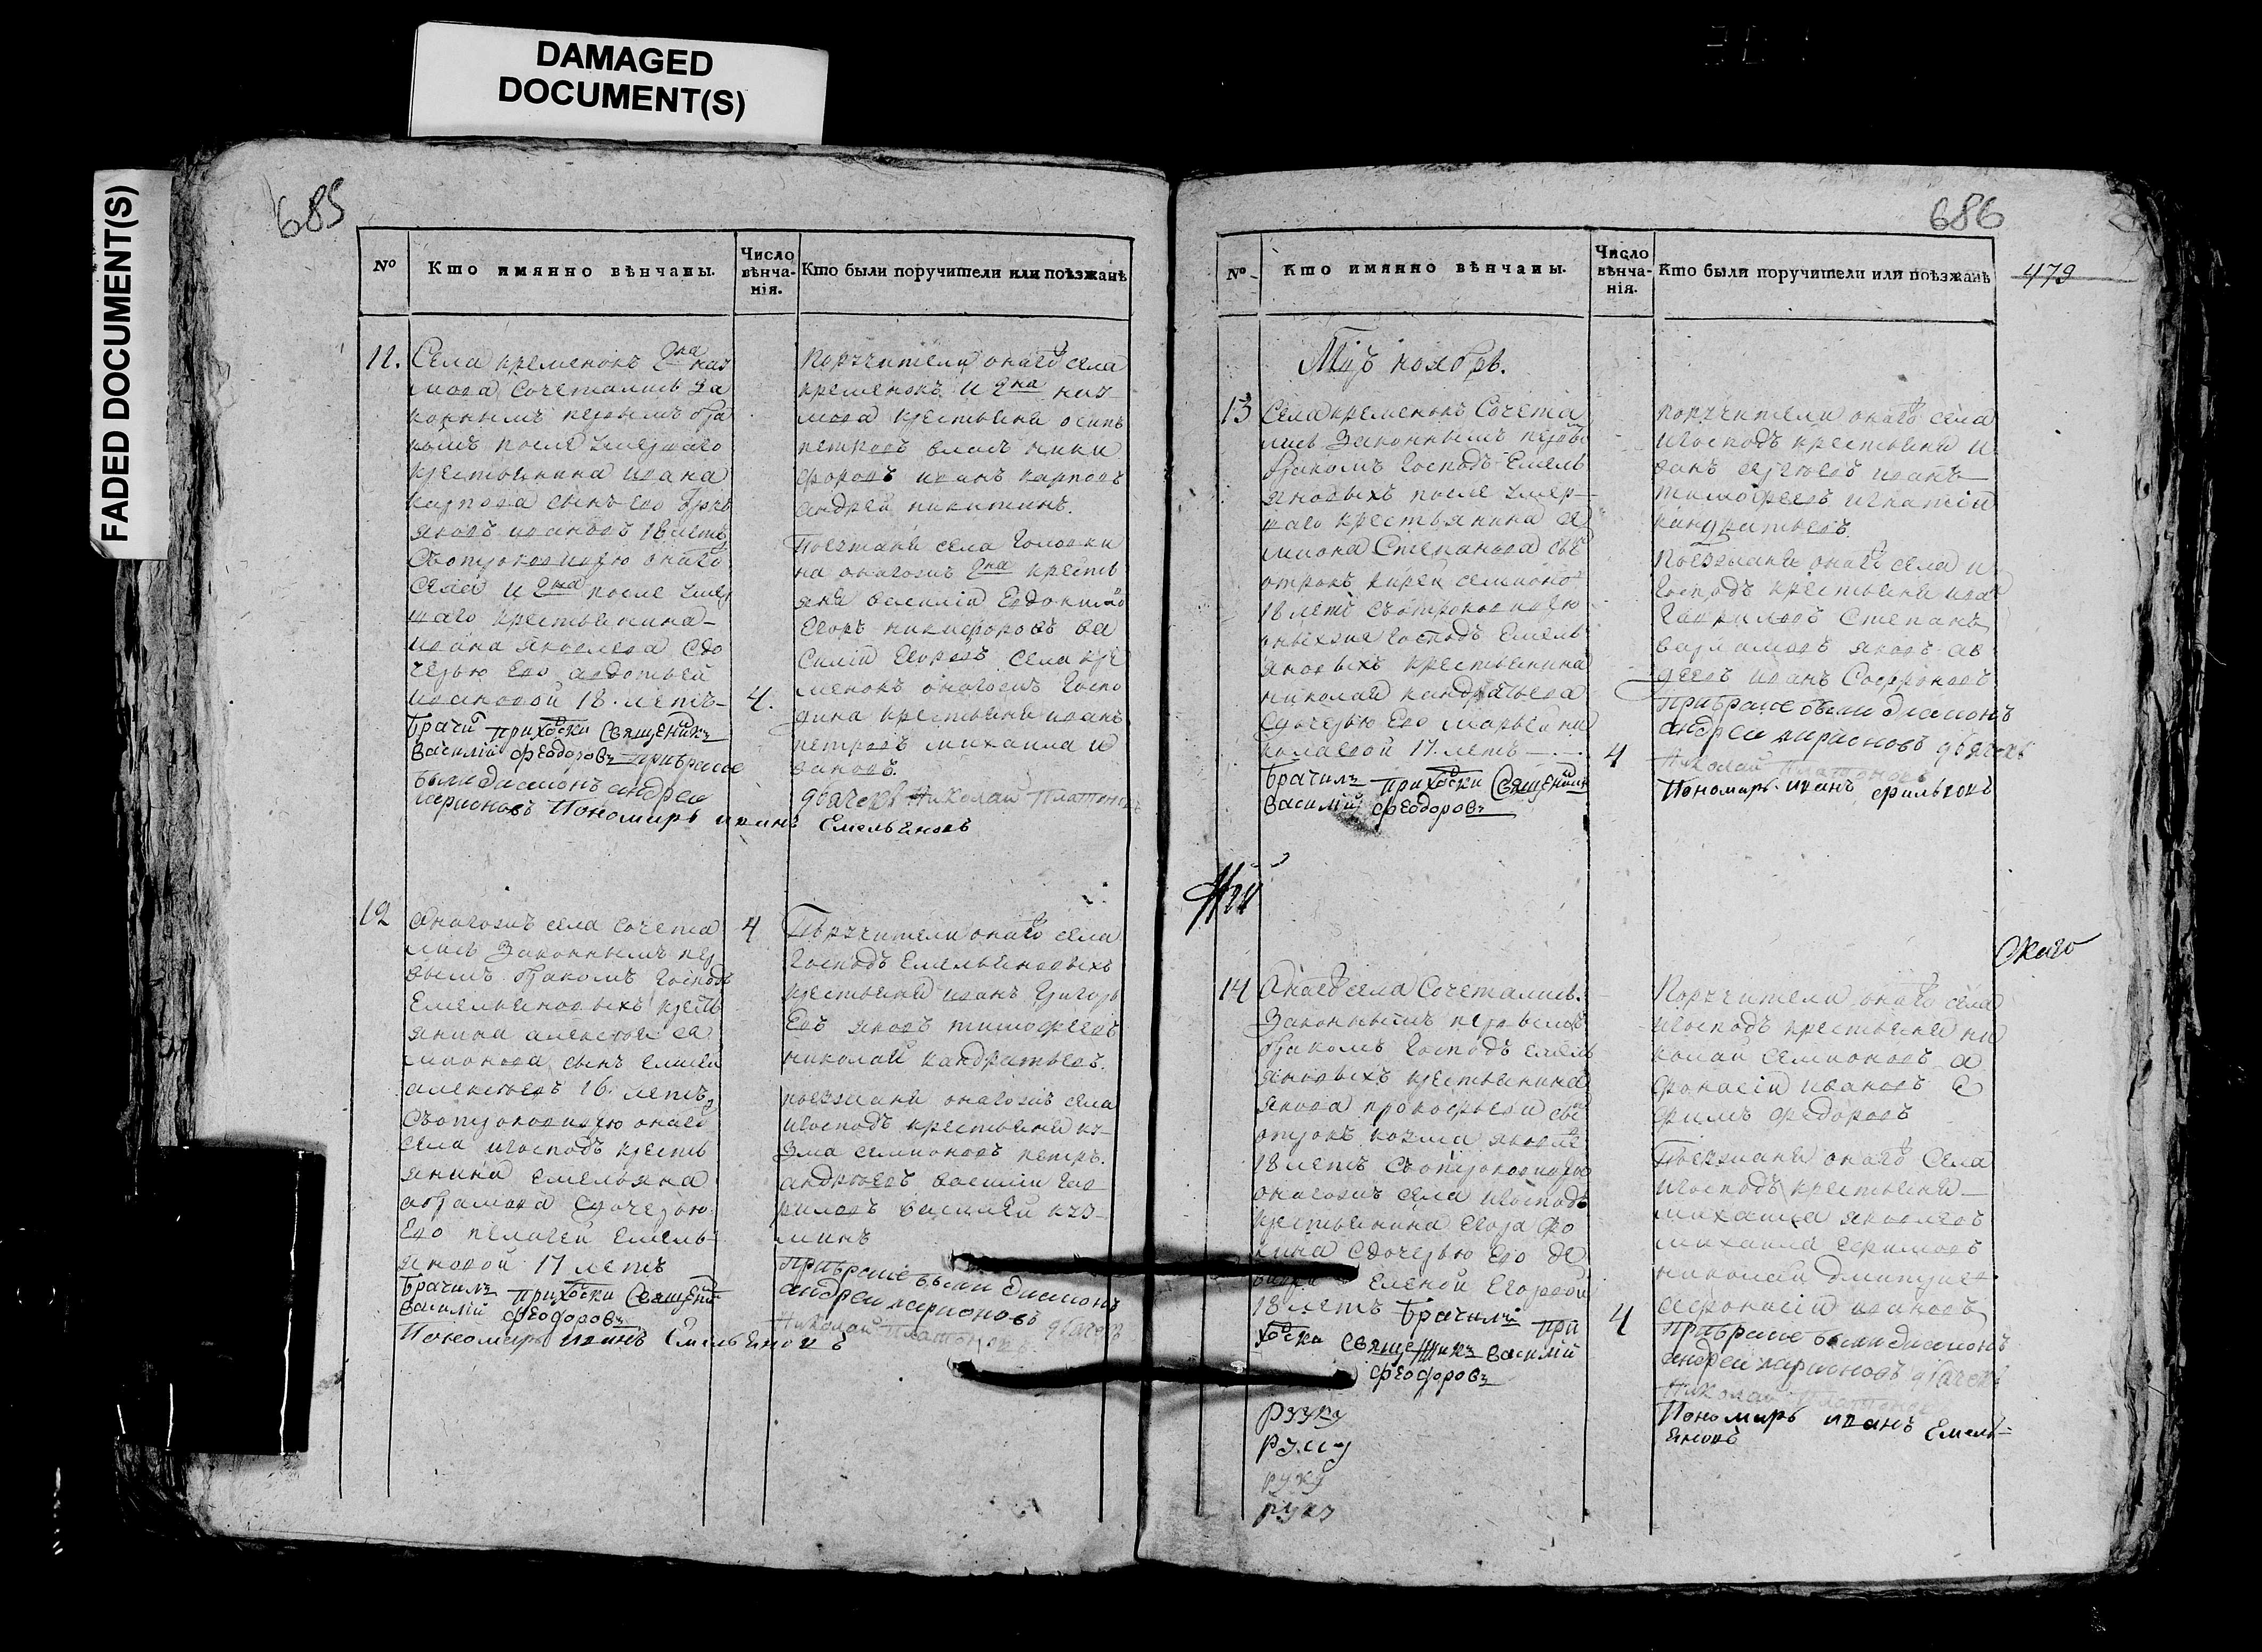 DAMAGED
DOCUMENT(S)
FADED DOCUMENT(S)
685
№ Кто имянно вѣнчаны. Число вѣнчанія. Кто были поручители или поѣзжанѣ
11. Села кременокъ Гна наз
мова Сочетались За
коннымъ первымъ бра
комъ после умершаго
крестьянина ивана
карпова сынъ его отрокъ
яковъ ивановъ 18 летъ
Съотроковицею онаго
села и Гна после умер
шаго крестьянина
ивана яковлева сдо
черью его авдотьей
ивановой 18. летъ
4.
Брачи приходски Священикъ
Василий Феодоровъ прибраке
были диаконъ андреи
ларионовъ Пономарь иванъ Емельяновъ
Поручители онаго села
кременокъ и Гна наз
мова крестьяне осипъ
петровъ власъ ники
форовъ иванъ карповъ
андрей никитинъ.
Поезжане села Головки
на онагожъ Гна кресть
яне василий Евдокимо
Егоръ никифоровъ ва
Силий Егоровъ села кре
менокъ онагожъ Госпо
дина крестьяне иванъ
петровъ михаила и
вановъ.
дьячекъ Николай Платоновъ
12 онагожъ села сочета
лись Законнымъ пер
вымъ бракомъ Господъ
Емельяновыхъ кресть
янина алексея се
мионова сынъ елисей
алексеевъ 16. летъ
Съотроковицею онаго
села игосподъ кресть
янина емельяна
абрамова Сдочерью
Его пелагей емель
яновой 17 летъ
4
Брачилъ приходски Священи
Василий Феодоровъ
Пономарь иванъ Емельяновъ
Поручители онаго села
Господъ Емельяновыхъ
крестьяне иванъ Григорь
Евъ яковъ тимофеевъ
николай кандратьевъ.
поезжане онагожъ села
игосподъ крестьяне ку
Зма семионовъ петръ.
андреевъ василий гав
риловъ василей куз
минъ
прибраке были диаконъ
андреи ларионовъ дьячекъ
Николай Платоновъ
686
479
№ Кто имянно вѣнчаны. Число вѣнчанія. Кто были поручители или поѣзжанѣ
Мцъ ноябрь.
13 Села кременокъ Сочета
лись Законнымъ первы
бракомъ Господъ Емель
яновыхъ после умер
шаго крестьянина се
миона Степанова сы
отрокъ кирей семионо
18 летъ Съотроковицею
оныхже Господъ Емель
яновыхъ крестьянина
николая кандратьева
Сдочерью Его марьей ни
колаевой 17. летъ
4
Брачилъ приходски Священикъ
Василий Феодоровъ
поручители онаго села
игосподъ крестьяне и
ванъ сергеевъ иванъ
тимофеевъ игнатий
кандратьевъ.
Поезжане онаго села и
Господъ крестьяне иван
Гавриловъ Степанъ
варламовъ яковъ ав
деевъ иванъ Софроновъ
прибраке были диаконъ
андреи ларионовъ дьячекъ
Николай Платоновъ
Пономарь иванъ
14 Онаго села Сочетались
Законнымъ первымъ
бракомъ Господъ емель
яновыхъ крестьянина
якова прокофьева сы
отрокъ козма яковле
18 летъ Съотроковицею
онагожъ села игосподъ
крестьянина Егора фо
кина Сдочерью Его де
Еленой Егоровой
18 летъ Брачилъ при
ходски Священикъ Василий
Феодоровъ
4
Поручители онаго села
игосподъ крестьяне ни
колай семионовъ а
фонасий ивановъ е
фимъ федоровъ
Поезжане онаго Села
игосподъ крестьяне
михаила яковлевъ
михаила
николай дмитрие
афонасий ивановъ
прибраке были диаконъ
андреи ларионовъ дьячекъ
Николай Платоновъ
Пономарь иванъ Емель=
яновъ